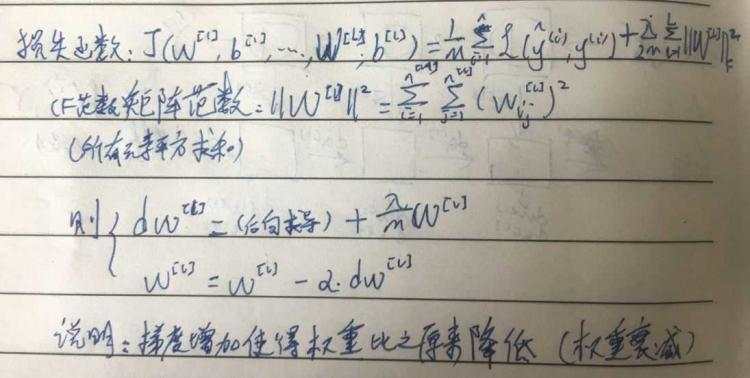 损失函数: J(W^[1], b^[1], ..., W^[L], b^[L]) = 1/m Σ_{i=1}^{m} L(ŷ^(i), y^(i)) + λ/2m Σ_{l=1}^{L} ||W^[l]||_F^2
(F范数矩阵范数: ||W^[l]||^2 = Σ_{i=1}^{n^[l-1]} Σ_{j=1}^{n^[l]} (W_ij^[l])^2
(所有元素平方求和)
则{ dW^[l] = (后向求导) + λ/m W^[l]
W^[l] = W^[l] - α · dW^[l]
说明: 梯度增加使得权重比之原来降低 (权重衰减)